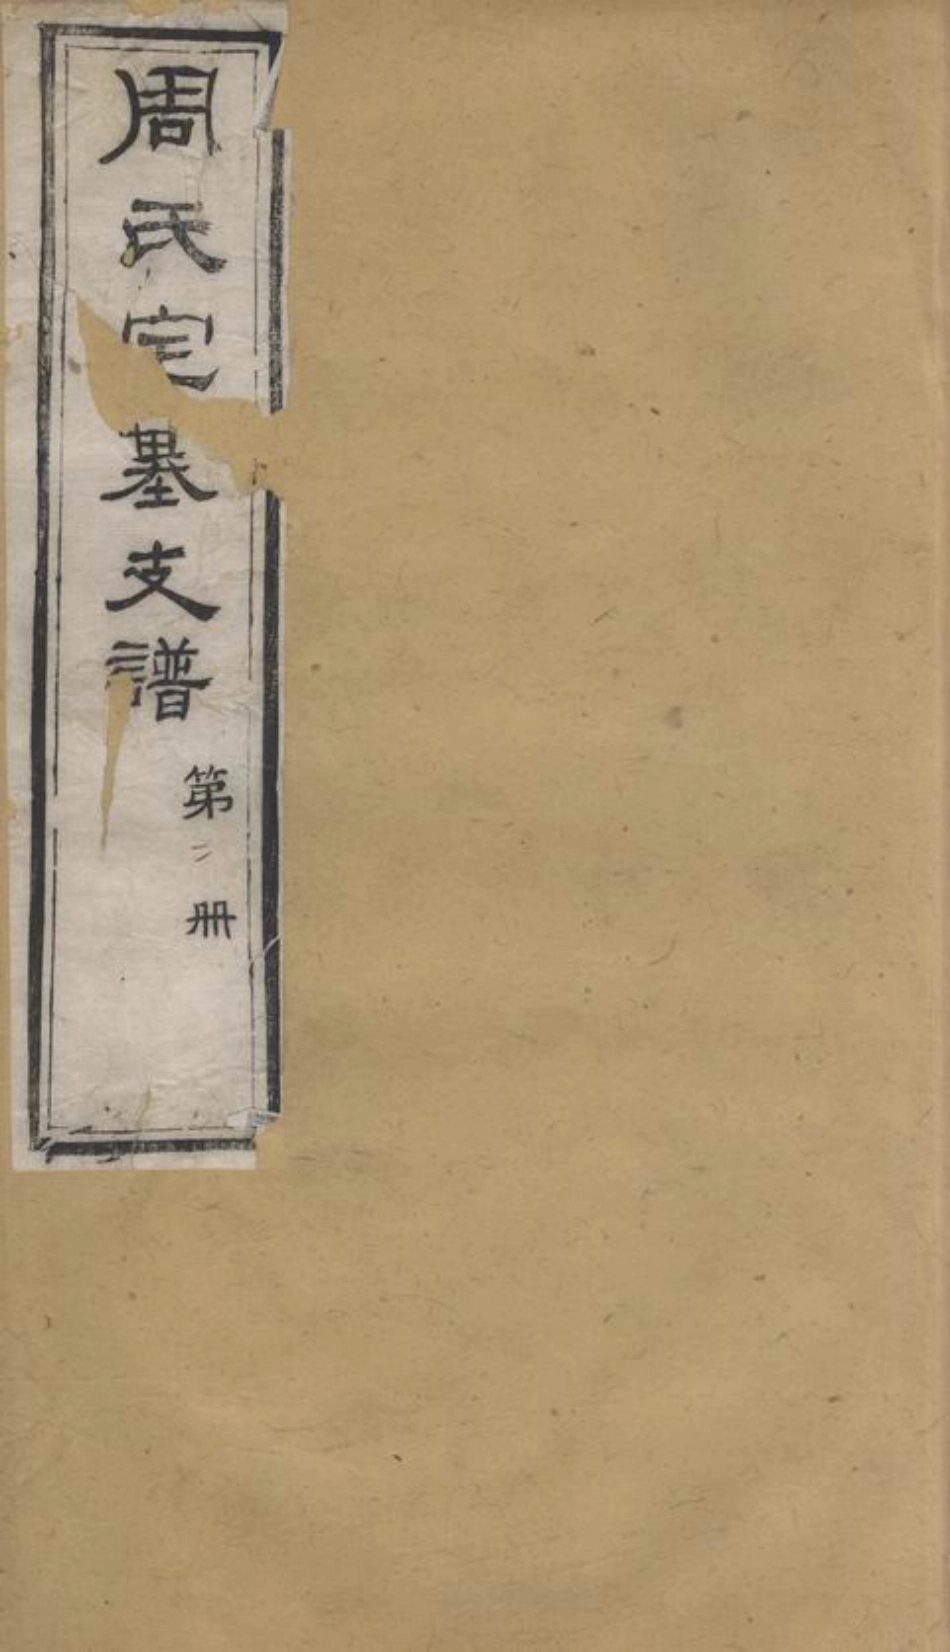 周氏宅墓支譜
第二冊